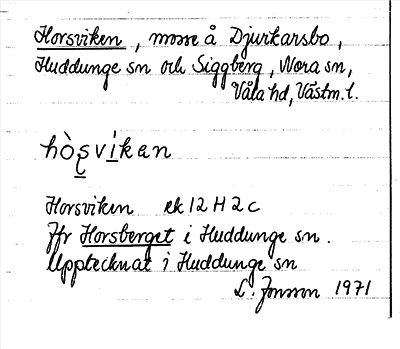 Horsviken, mosse å Djurkarsbo,
Huddunge sn och Siggberg, Nora sn,
Våla hd, Västm. l.
hòʂvikan
Horsviken ek 12 H 2 c
Jfr Horsberget i Huddunge sn.
Upptecknat i Huddunge sn
L. Jonsson 1971